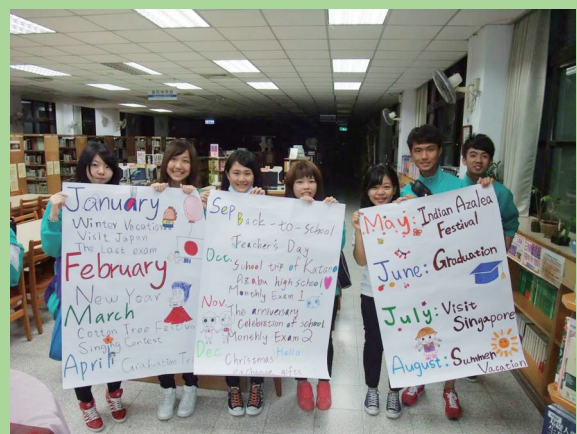 January
Winter Vacation
Visit Japan
The Last exam
February
New Year
March
Cotton Tree Festival
Singing Contest
April
Graduation
Sep
Back-to-school
Teacher's Day
Oct.
School trip of Katano
Azabu high school
Monthly Exam 1
Nov.
The anniversary
Celebration of school
Monthly Exam 2
Dec
Hello
Christmas
exchange gifts
May: Indian Azalea
Festival
June: Graduation
July: Visit
Singapore
August: Summer
Vacation